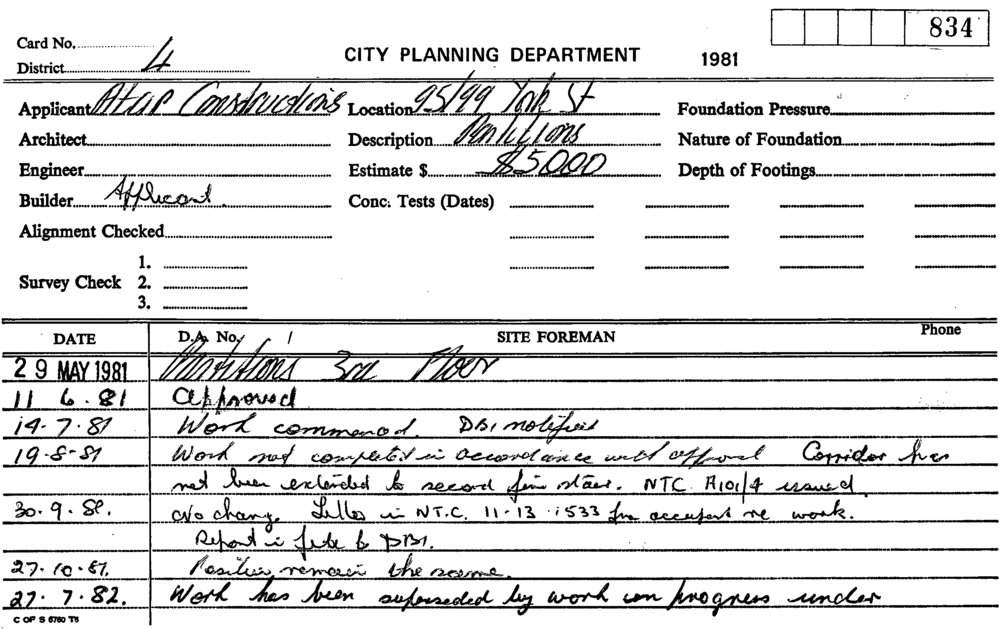 834
Card No.
CITY PLANNING DEPARTMENT 1981
District 4
Applicant Atar Constructions Location 95/99 York St Foundation Pressure
Architect Description Partitions Nature of Foundation
Engineer Estimate $ $5000 Depth of Footings
Builder Applicant. Conc. Tests (Dates)
Alignment Checked
Survey Check 1.
2.
3.
DATE D.A. No. / SITE FOREMAN Phone
29 MAY 1981 Partitions 3rd Floor
11 6.81 Approved
14.7.81 Work commenced. DBI notified
19-8-81 Work not completed in accordance with approval Corridor has
not been extended to second fire stair. NTC A101/4 issued
30.9.81. No change. Letter in NTC. 11-13.1533 from occupant re work.
Report in file to DBI.
27.10.81. Position remain the same.
27.7.82. Work has been superseded by work in progress under
C OF S 5760 T5